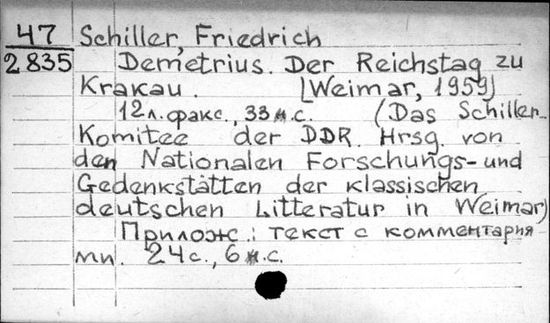 47 Schiller, Friedrich
2835 Demetrius. Der Reichstag zu
Krakau. [Weimar, 1959]
12л. факс., 33 н.с. (Das Schiller-
Komitee der DDR. Hrsg. von
den Nationalen Forschungs- und
Gedenkstätten der klassischen
deutschen Litteratur in Weimar)
Прилож.: текст с комментария
ми. 24 с., 6 н.с.